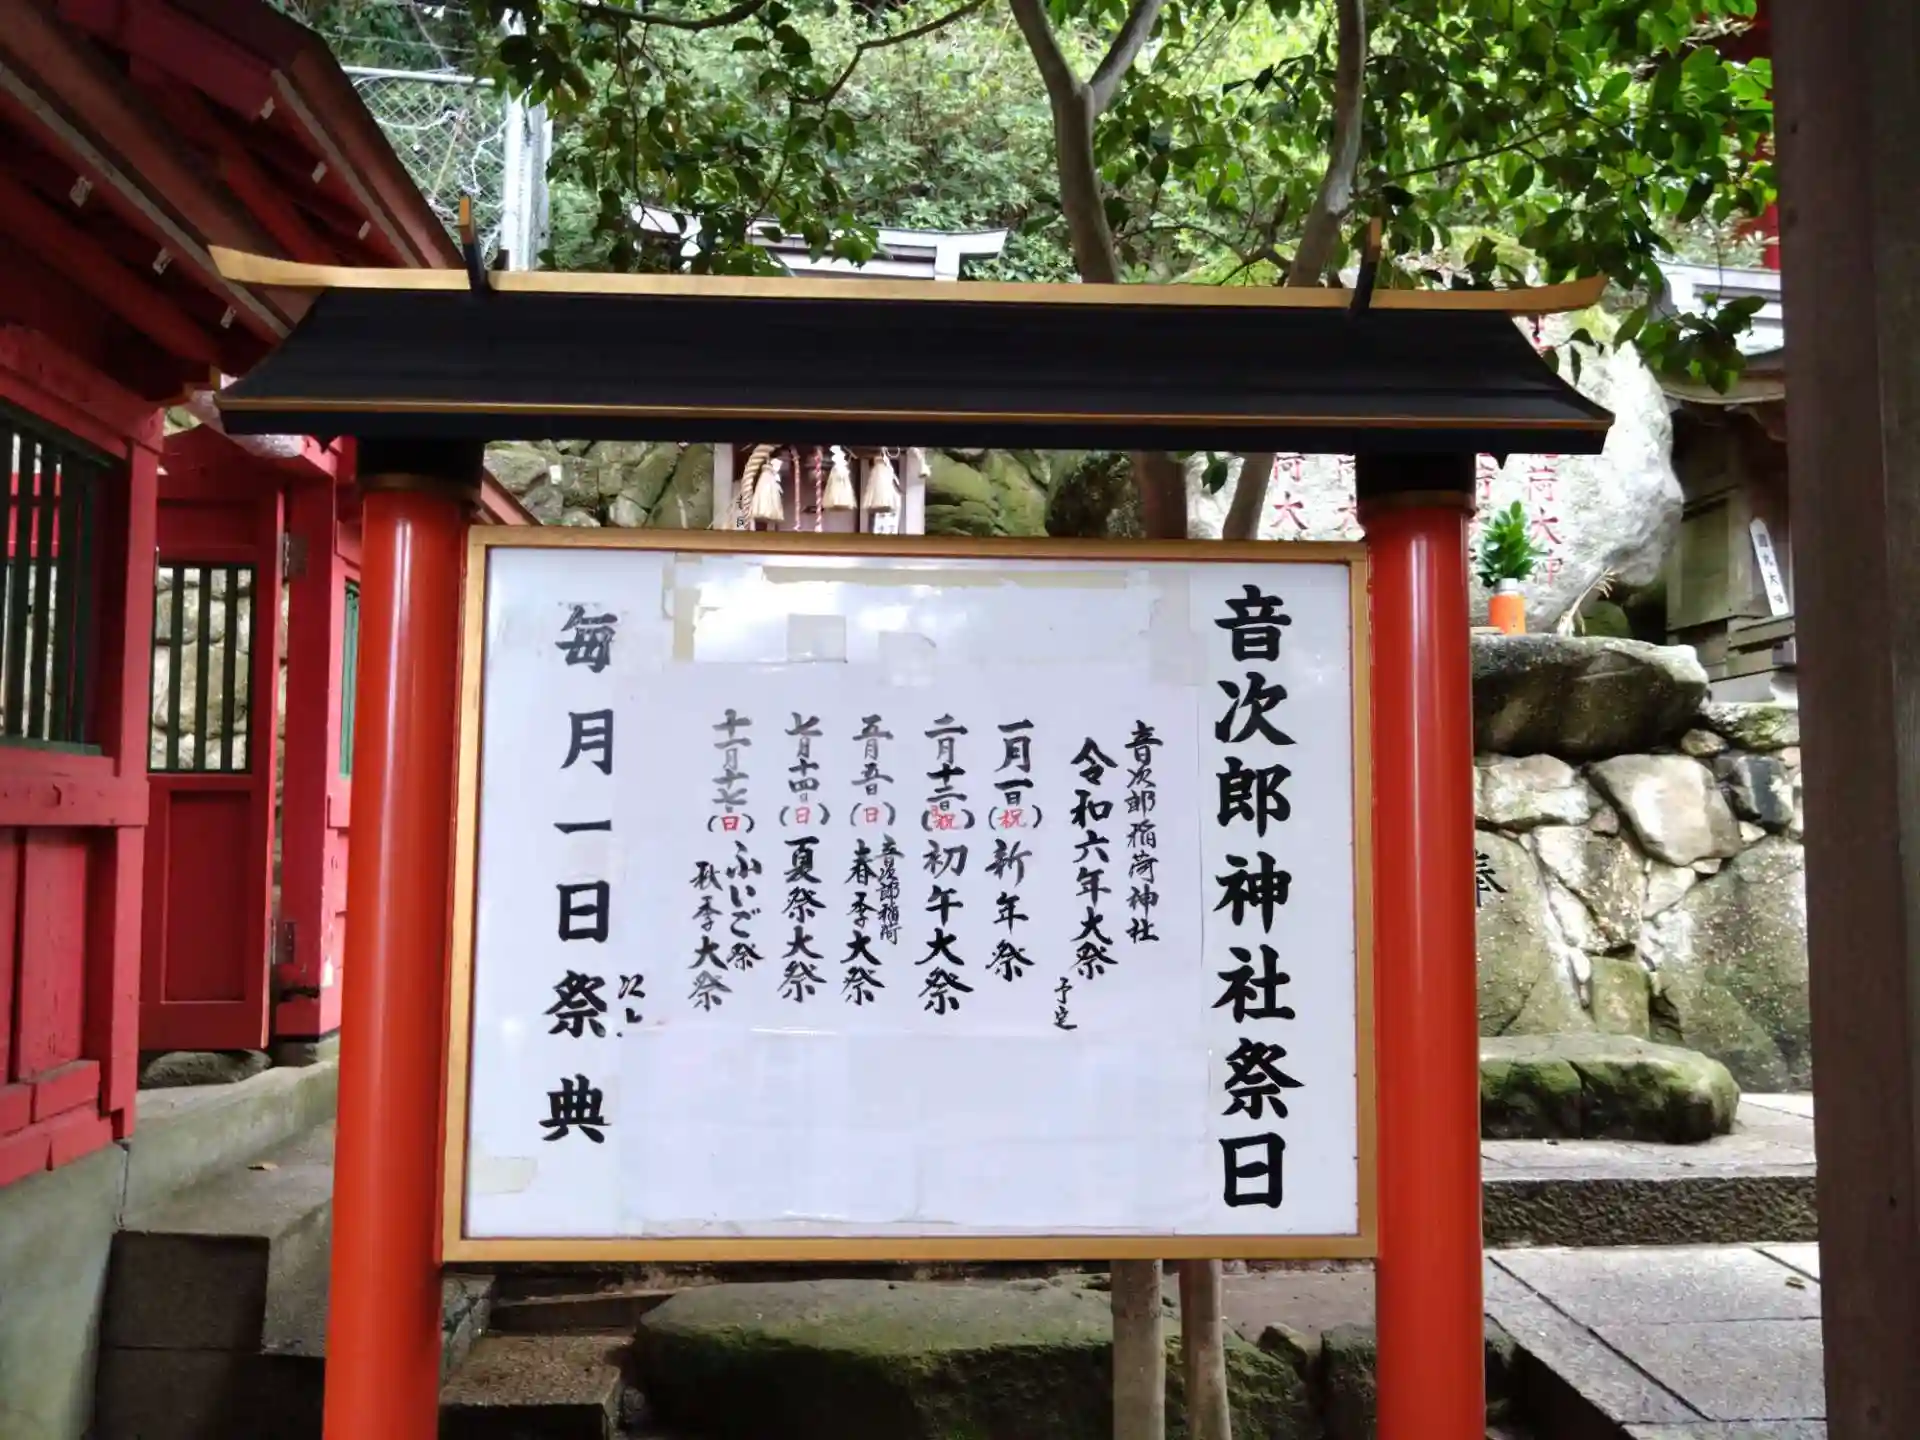 音次郎神社祭日
音次郎稲荷神社
令和六年大祭 予定
一月一日(祝) 新年祭
二月十二日(祝) 初午大祭
五月五日(日) 音次郎稲荷 春季大祭
七月十四日(日) 夏祭大祭
十一月十七日(日) ふいご祭 秋季大祭
毎月一日祭典
荷大
荷大神
奉